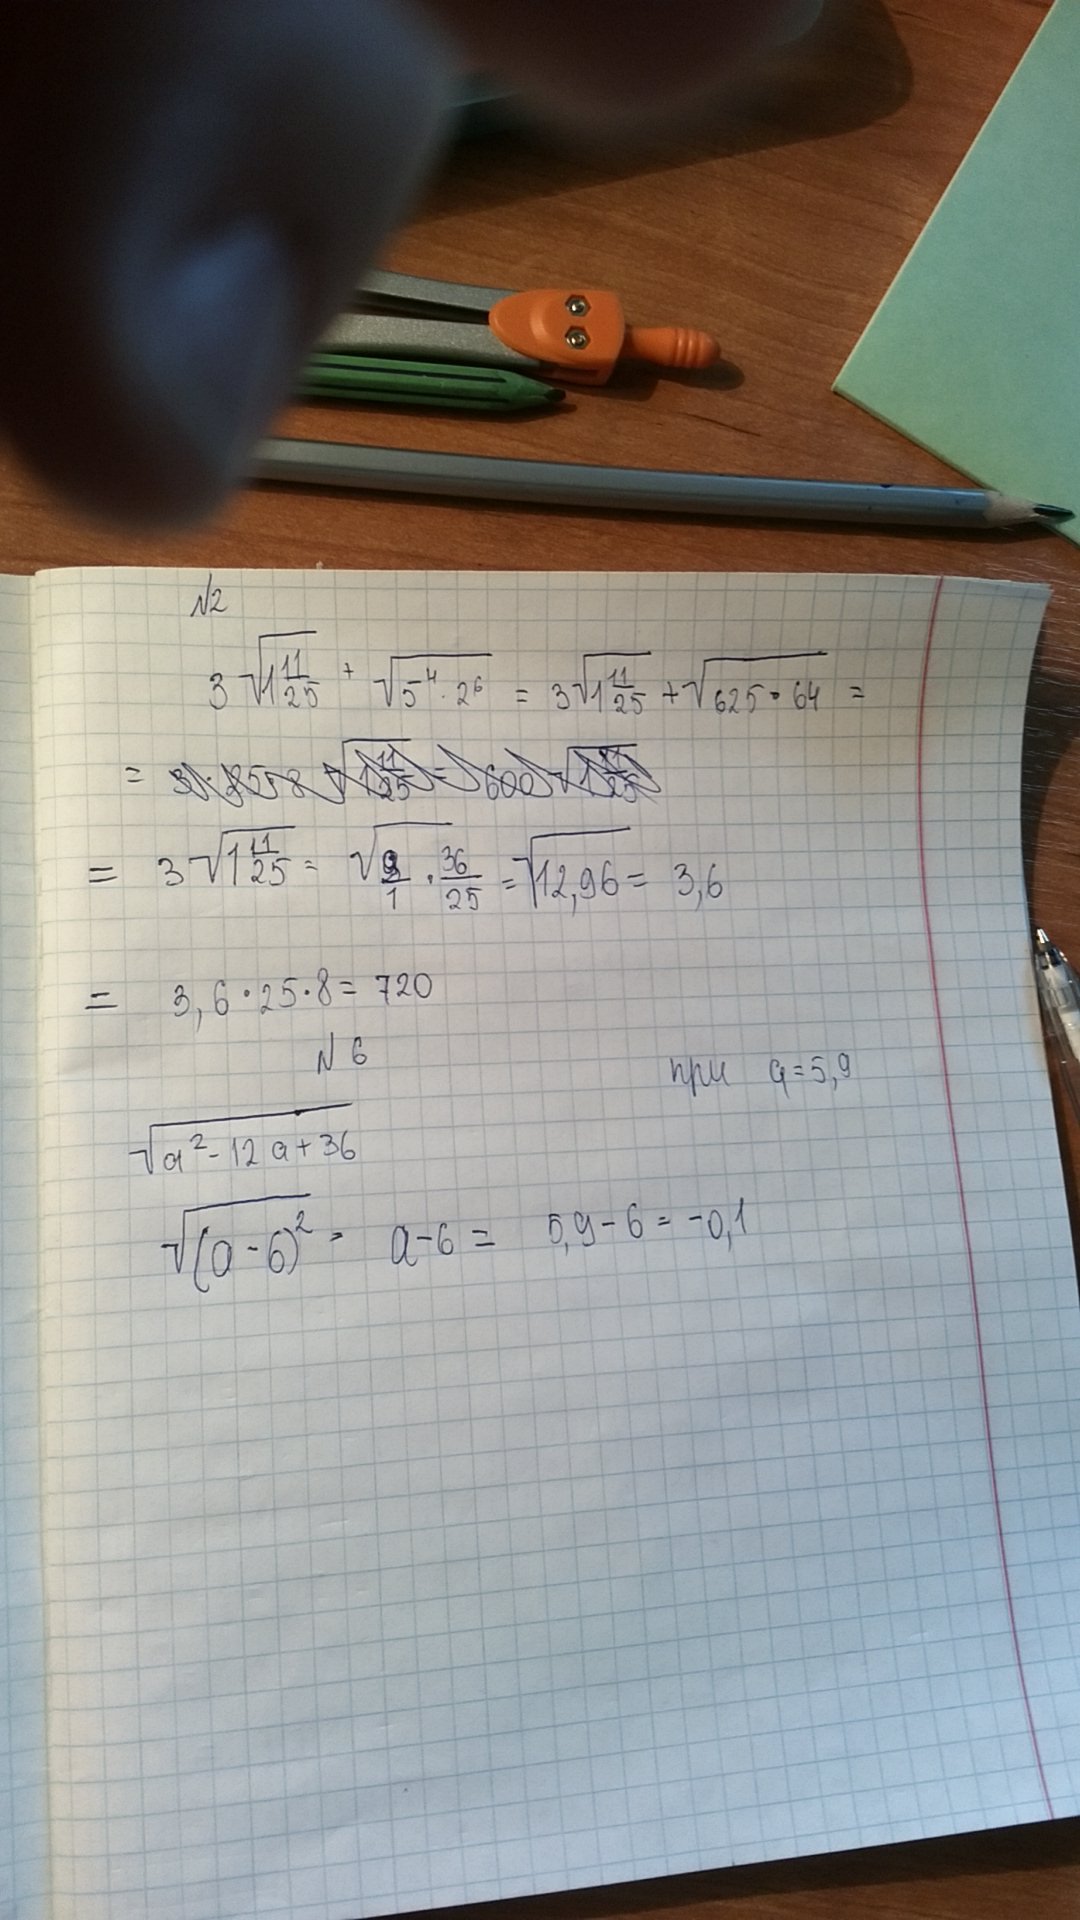 №2
3√(1 11/25) + √(5⁴·2⁶) = 3√(1 11/25) + √(625·64) =
= 3√(1 11/25) = √(9/1 · 36/25) = √(12,96) = 3,6
= 3,6·25·8 = 720
№6
при a=5,9
√(a²-12a+36)
√((a-6)²) = a-6 = 5,9-6 = -0,1